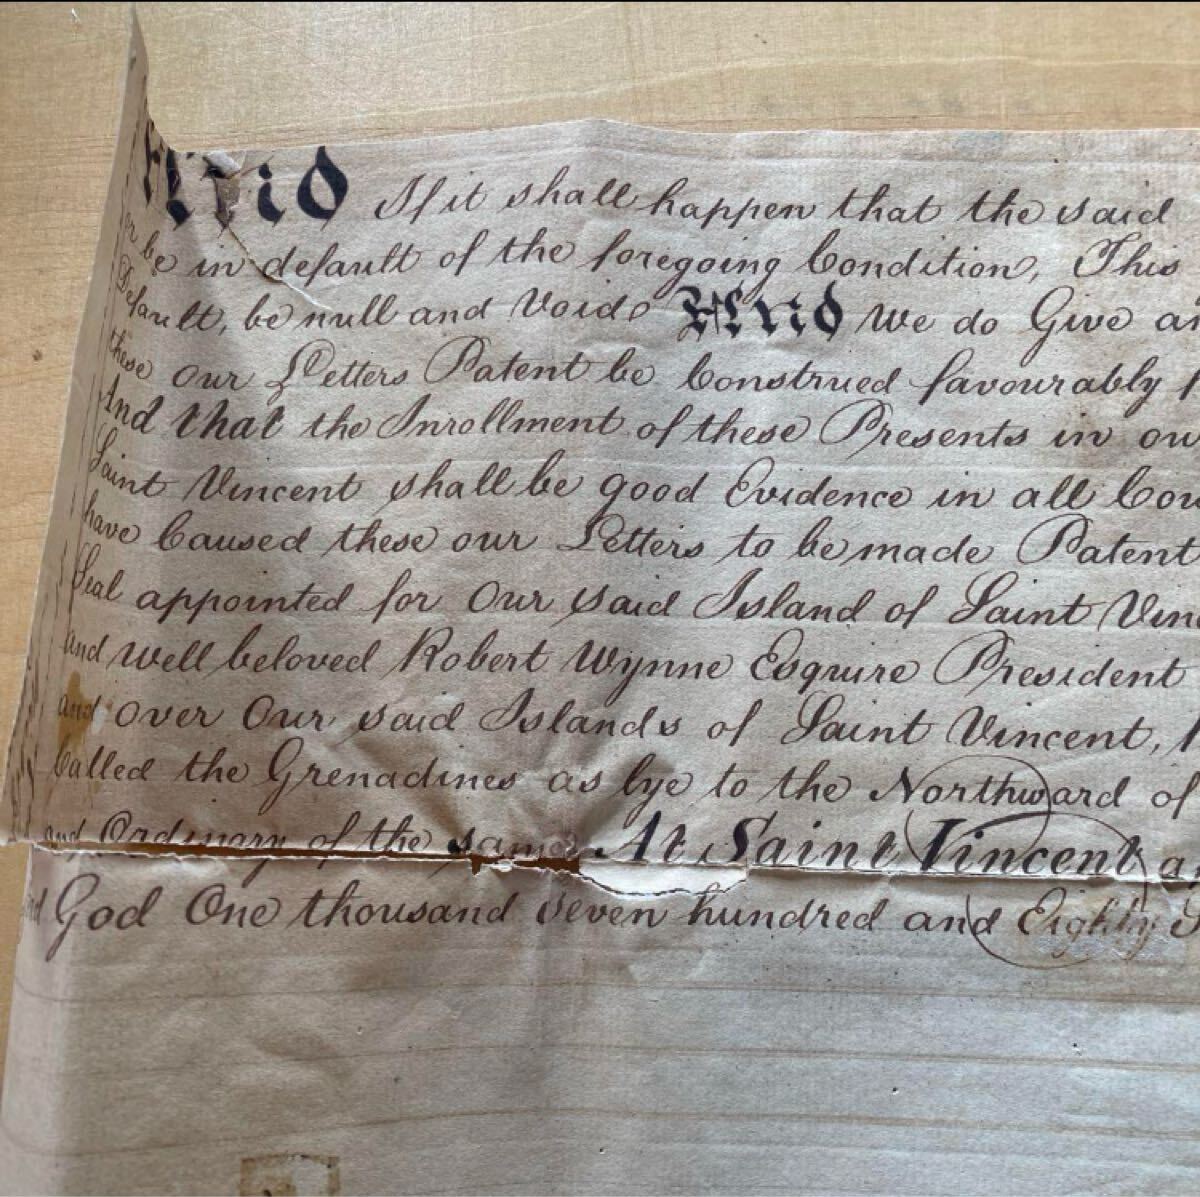 And If it shall happen that the said
or be in default of the foregoing Condition, This
Default, be null and Void. And We do Give
these our Letters Patent be Construed favourably
And that the Inrollment of these Presents in
Saint Vincent shall be good Evidence in all
have Caused these our Letters to be made Patent
Seal appointed for Our said Island of Saint
and well beloved Robert Wynne Esquire President
and over Our said Islands of Saint Vincent,
Called the Grenadines as lye to the Northward of
and Ordinary of the same At Saint Vincent
God One thousand seven hundred and Eighty